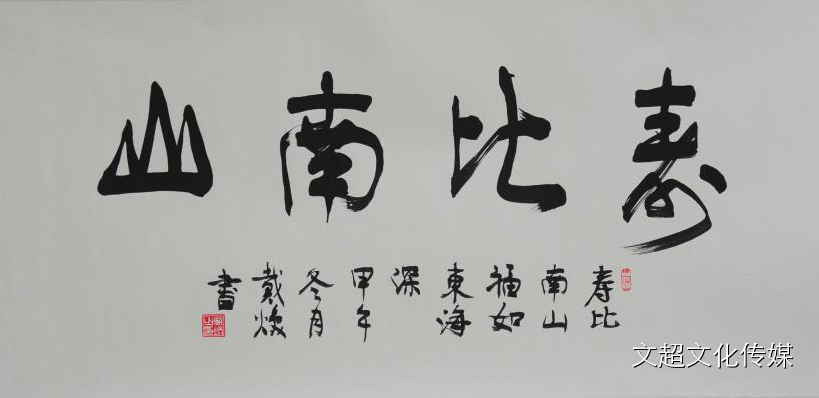 寿比南山
寿比
南山
福如
東海
深
甲午
冬月
戴焕
書
文超文化传媒